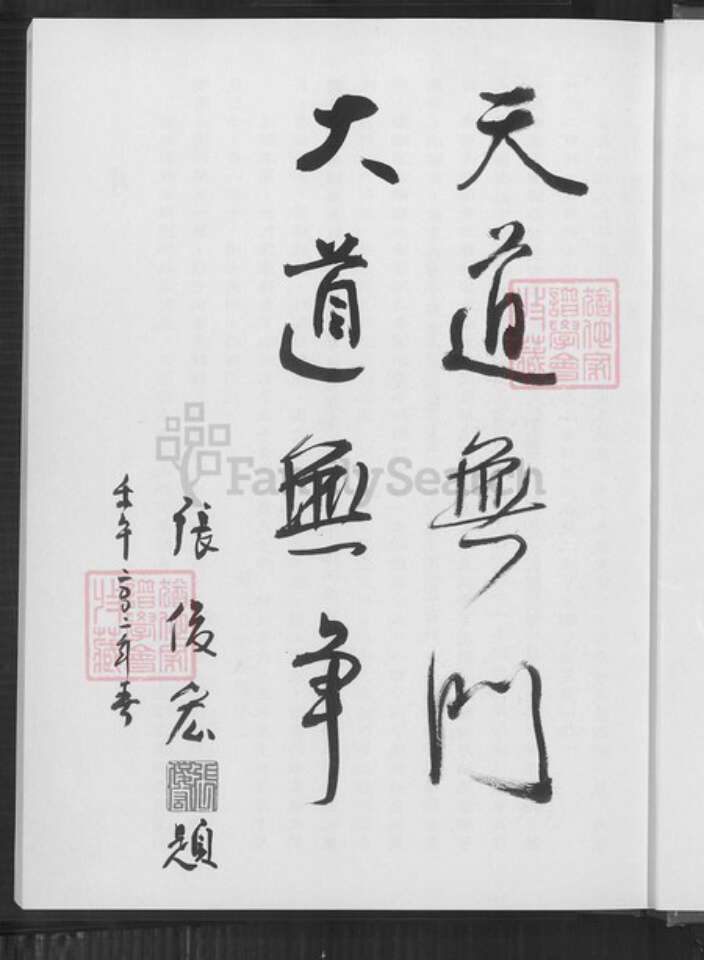 天道無門
大道無争
張俊宏題
壬午二〇〇二年春
FamilySearch